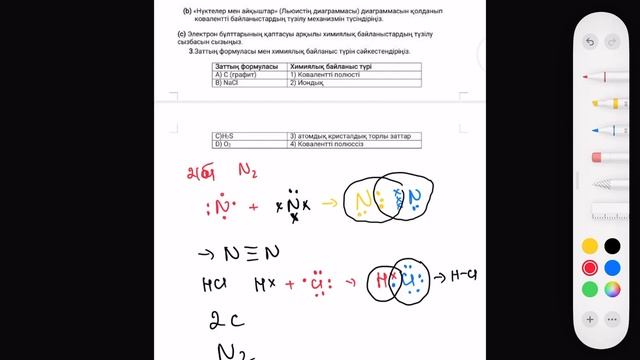 (b) «Нүктелер мен айқыштар» (Льюистің диаграммасы) диаграммасын қолданып
ковалентті байланыстардың түзілу механизмін түсіндіріңіз.
(c) Электрон бұлттарының қаптасуы арқылы химиялық байланыстардың түзілу
сызбасын сызыңыз.
3.Заттың формуласы мен химиялық байланыс түрін сәйкестендіріңіз.
Заттың формуласы Химиялық байланыс түрі
A) C (графит) 1) Ковалентті полюсті
B) NaCl 2) Иондық
C)H₂S 3) атомдық кристалдық торлы заттар
D) O₂ 4) Ковалентті полюссіз
N₂
N + N → N N
→ N≡N
HCl H× + Cl → H Cl → H-Cl
2c
N₂